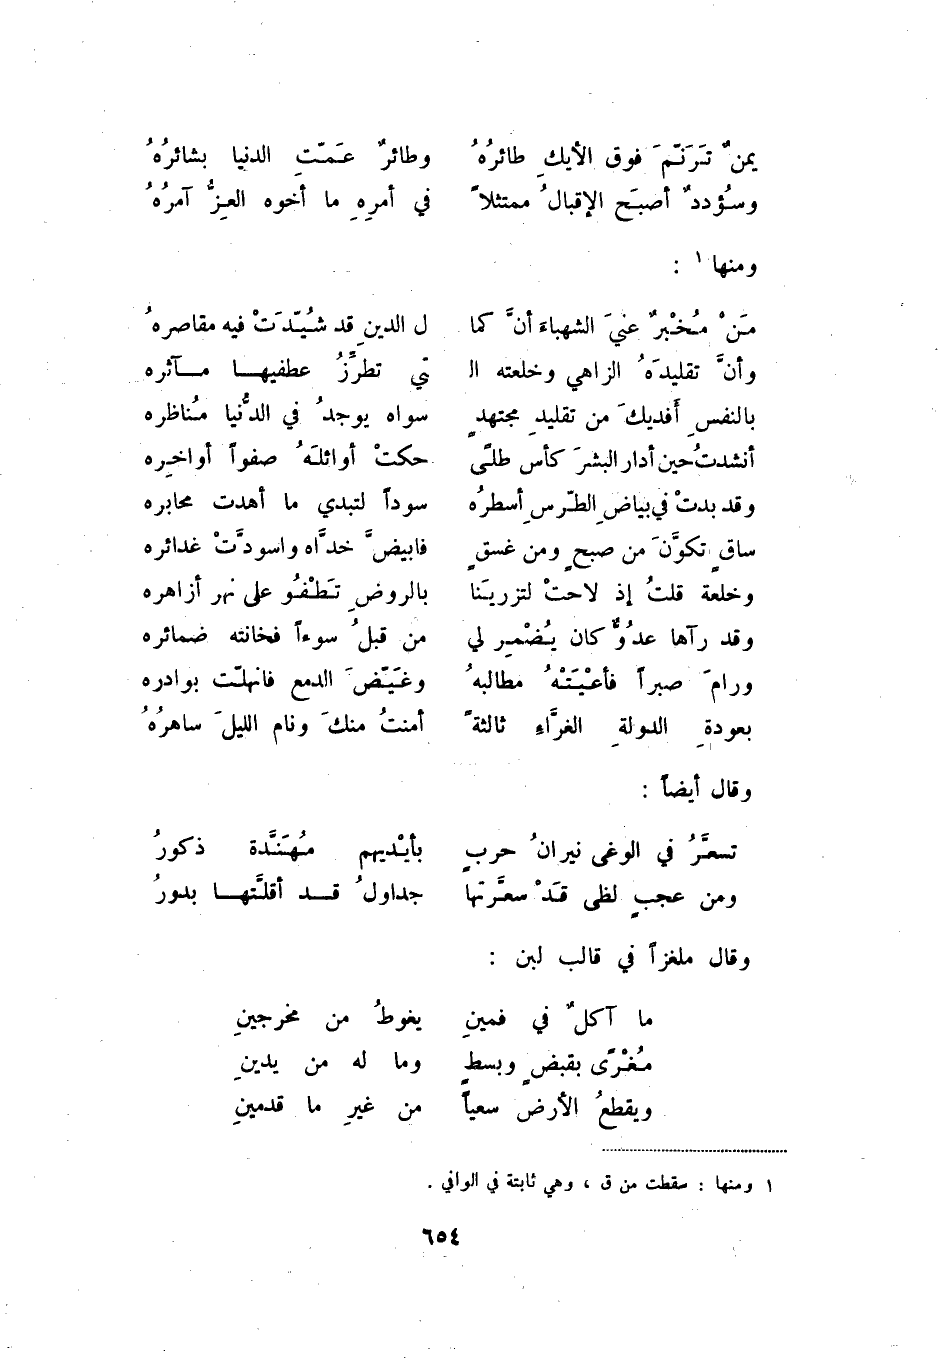 يمنٌ تَرَنَّمَ فوق الأيكِ طائرُهُ وطائرٌ عَمّتِ الدنيا بشائرُهُ
وسُؤددٌ أصبَح الإقبالُ ممتثلاً في أمرِهِ ما أخوه العزُّ آمرُهُ
ومنها ١ :
مَنْ مُخْبرٌ عنيَ الشهباءَ أنَّ كما ل الدينِ قد شُيّدَتْ فيه مقاصرهُ
وأنَّ تقليدَهُ الزاهي وخلعته الـ تي تطرِّزُ عطفيهـا مـآثره
بالنفسِ أفديكَ من تقليدِ مجتهدٍ سواه يوجدُ في الدُّنيا مُناظره
أنشدتُ حين أدار البشرَ كأس طلًى حكتْ أوائلَهُ صفواً أواخرِه
وقد بدتْ في بياضِ الطّرسِ أسطرُه سوداً لتبدي ما أهدت محابره
ساقٍ تكوَّنَ من صبحٍ ومن غسقٍ فابيضَّ خدَّاه واسودَّتْ غدائره
وخلعة قلتُ إذ لاحتْ لتزريَنا بالروضِ تَطْفُو على نهر أزاهره
وقد رآها عدُوٌّ كان يُضْمِر لي من قبلُ سوءاً فخانته ضمائره
ورامَ صبراً فأعْيَتْهُ مطالبهُ وغَيّضَ الدمع فانهلّت بوادره
بعودةِ الدولةِ الغرَّاءِ ثالثةً أمنتُ منكَ ونام الليلَ ساهرُهُ
وقال أيضاً :
تسعَّرُ في الوغى نيرانُ حربٍ بأيْديهم مُهَنَّدة ذكورُ
ومن عجبٍ لظى قَدْ سعَّرتها جداولُ قـد أقلَّتهـا بدورُ
وقال ملغزاً في قالب لبن :
ما آكلٌ في فمينِ يغوطُ من مخرجينِ
مُغْرًى بقبضٍ وبسطٍ وما له من يدينِ
ويقطعُ الأرضَ سعياً من غيرِ ما قدمينِ
١ ومنها : سقطت من ق ، وهي ثابتة في الوافي .
٦٥٤